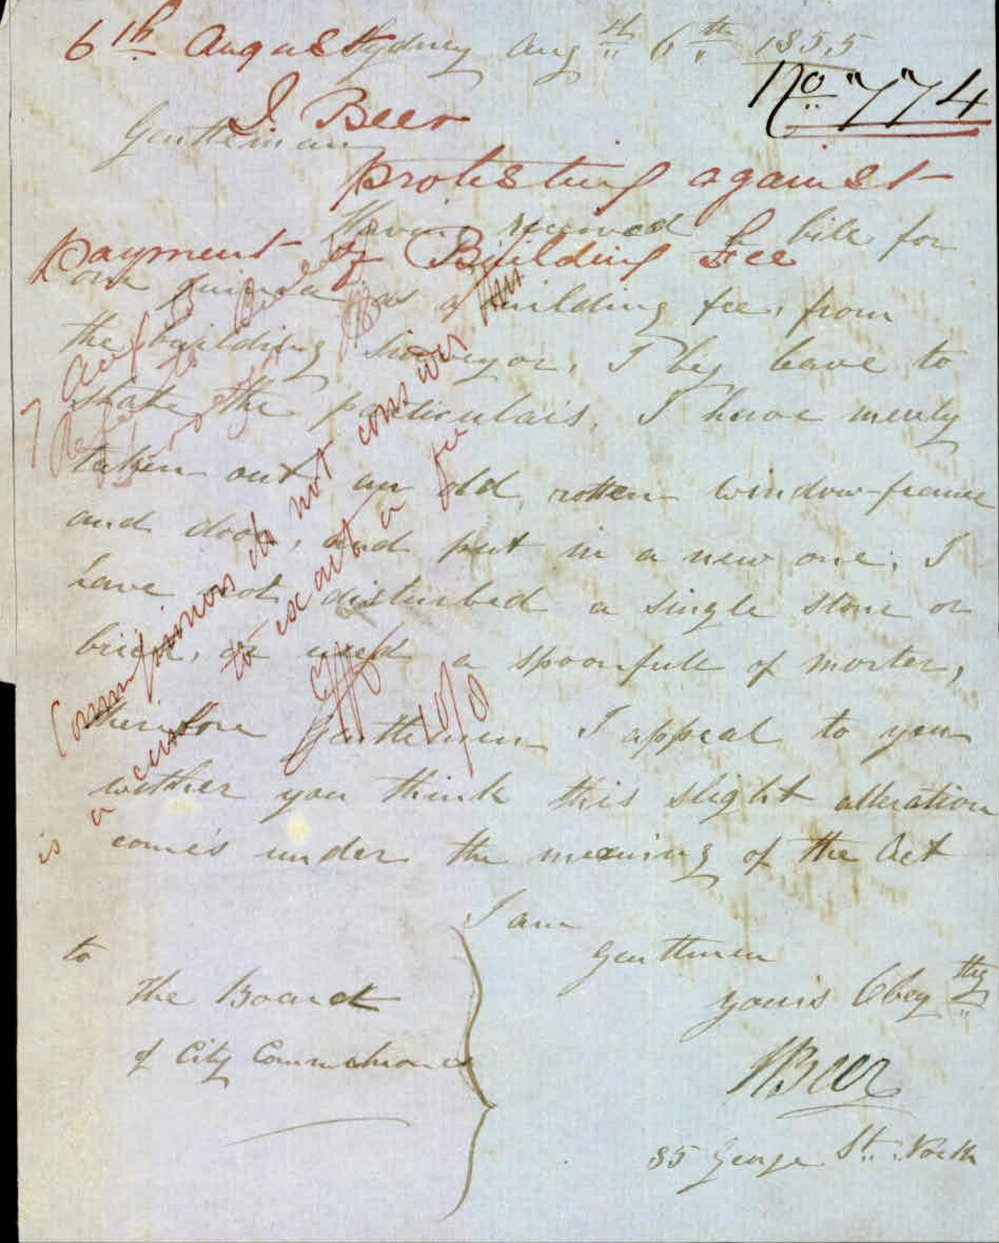 6th August
Sydney Aug th 6th 1855
No 774
J Beer
Gentleman
protesting against
Having received a bill for
payment of Building Fee
one guinea as a building fee, from
the building Surveyor, I beg leave to
state the particulars, I have merely
taken out an old rotten window-frame
and door, and put in a new one; I
have not disturbed a single stone or
brick, or used a spoonfull of morter,
therefore gentlemen I appeal to you
wether you think this slight alteration
comes under the meaning of the Act
I am
gentlemen
yours Obey thy
Beer
85 George St. North
to
The Board
of City Commissioners
Commissioners do not consider this
is a case to exact a fee
10/8